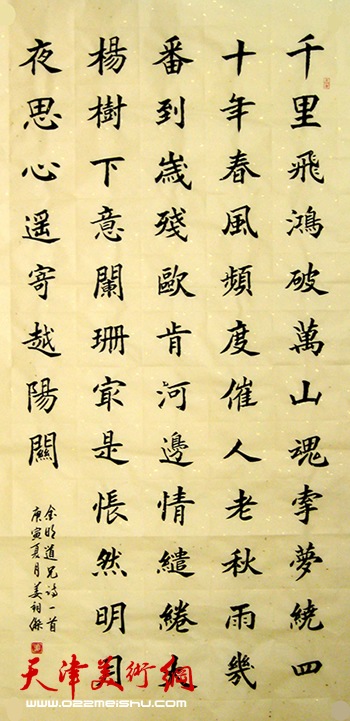 千里飛鴻破萬山魂牽夢繞四
十年春風頻度催人老秋雨幾
番到嵗殘歐肯河邊情繾綣大
楊樹下意闌珊㝡是悵然明月
夜思心遥寄越陽關
金明道兄诗一首
庚寅夏月姜
天津美術網
www.022meishu.com